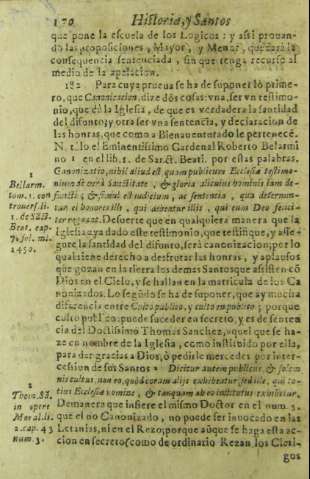 170 Historia, y Santos
que pone la escuela de los Logicos: y assi prouan-
do las proposiciones, Mayor, y Menor, quedarà la
consequencia sentenciada, sin que tenga recurso al
medio de la apelacion.
182 Para cuya prueua se ha de suponer lo prime-
ro, que Canonizacion, dize dòs cosas: vna, ser vn testimo-
nio, que dà la Iglesia, de que es verdadera la santidad
del difunto; y otra ser vna sentencia, y declaracion de
las honras, que como a Bienauenturado le pertenecē.
N. I. lo el Eminentissimo Cardenal Roberto Belarmi
no 1 en el lib. 1. de Sanct. Beati. por estas palabras.
Canonizatio, nihil aliud est quam publicum Ecclesiæ testimo-
nium de vera sanctitate, & gloria alicuius hominis iam de-
functi; & simul est iudicium, ac sententia, qua decernun-
tur ei honores illi, qui debentur illis, qui cum Deo felici-
ter regnant. De suerte que en qualquiera manera que la
Iglesia aya dado este testimonio, que testifique, y asse-
gure la santidad del difunto, serà canonizacion; por lo
qual tiene derecho a desfrutar las honras, y aplausos
que gozan en la tierra los demas Santos que assisten cō
Dios en el Cielo, y se hallan en la matricula de los Ca
nonizados. Lo segūdo se ha de suponer, que ay mucha
diferencia entre Culto publico, y culto en publico; porque
culto publico puede suceder en secreto, y es de senten
cia del Doctissimo Thomas Sanchez, aquel que se ha-
ze en nombre de la Iglesia, como instituido por ella,
para dar gracias a Dios, ò pedirle mercedes por inter-
cession de sus Santos 2 Dicitur autem publicus, & solem
nis cultus, non eo, quod coram alijs exhibeatur, sed ille, qui to-
tius Ecclesiæ nomine, & tanquam ab eo institutus exhibetur.
De manera que infiere el mismo Doctor en el num. 3.
que el no Canonizado, no puede ser inuocado en las
Letanias, ni en el Rezo, porque aũque se haga esta ac-
cion en secreto, como de ordinario Rezan los Cleri-
gos
1
Bellarm.
tom. 1. con
trouers. li.
1. de SS.
Beat. cap.
7. fol. mi.
1450.
2
Thom. Sā.
in opere
Moral. li.
2. cap. 43
num. 3.